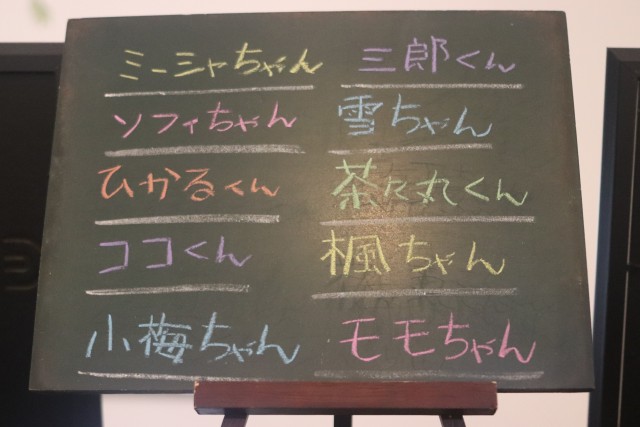 ミーシャちゃん
三郎くん
ソフィちゃん
雪ちゃん
ひかるくん
茶々丸くん
ココくん
楓ちゃん
小梅ちゃん
モモちゃん